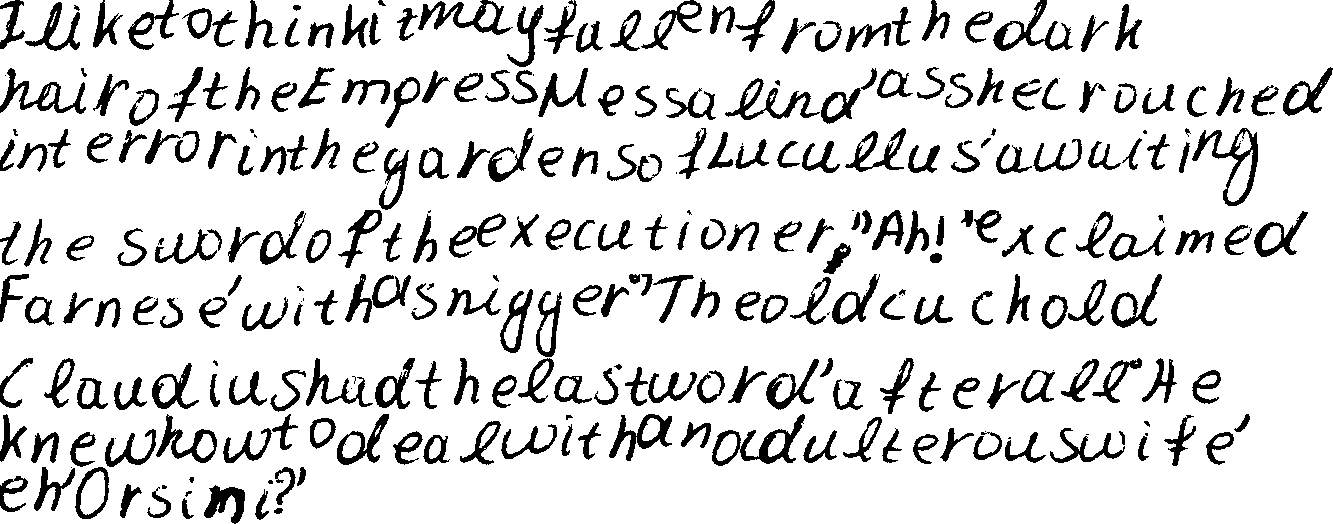 I like to think it may fallen from the dark
hair of the Empress Messalina' as she crouched
in terror in the gardens of Lucullus' awaiting
the sword of the executioner," "Ah!" exclaimed
Farnese' with a snigger." "The old cuckold
Claudius had the last word' after all" He
knew how to deal with an adulterous wife'
eh' Orsimi?"